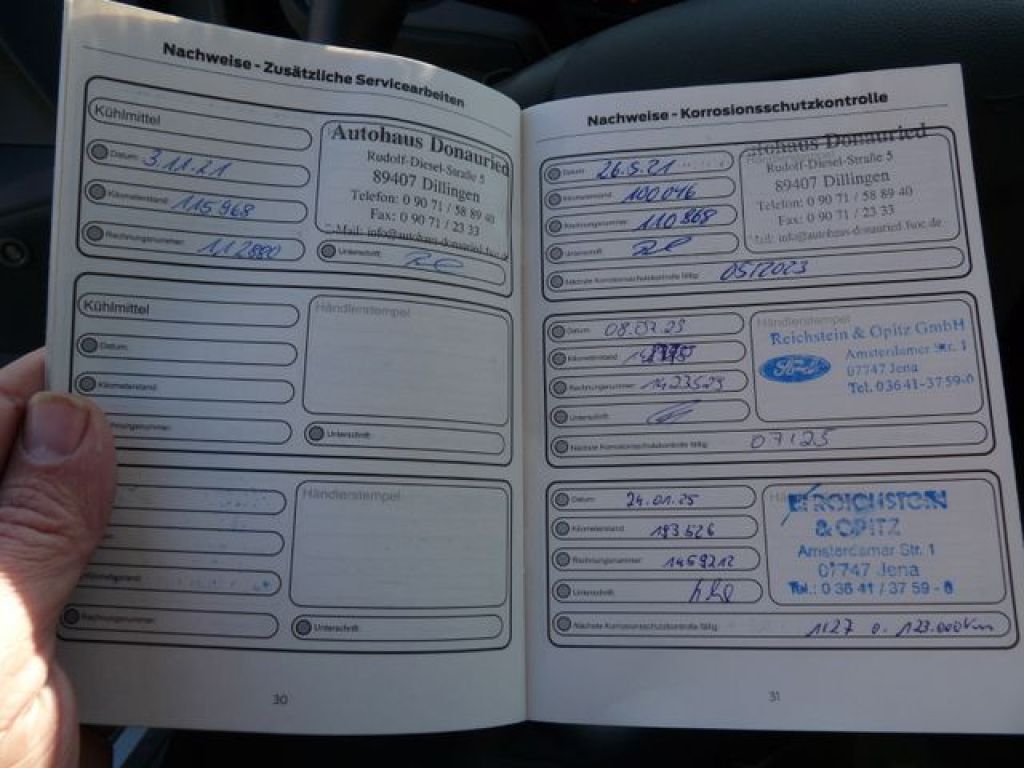 Nachweise - Zusätzliche Servicearbeiten
Kühlmittel
Datum: 3.11.21
Kilometerstand: 115968
Rechnungsnummer: 112880
Autohaus Donauried
Rudolf-Diesel-Straße 5
89407 Dillingen
Telefon: 0 90 71 / 58 89 40
Fax: 0 90 71 / 23 33
Mail: info@autohaus-donauried.fsoc.de
Unterschrift:
Kühlmittel
Datum:
Kilometerstand:
Rechnungsnummer:
Händlerstempel
Unterschrift:
Kilometerstand:
Rechnungsnummer:
Händlerstempel
Unterschrift:
30
Nachweise - Korrosionsschutzkontrolle
Datum: 26.5.21
Kilometerstand: 100046
Rechnungsnummer: 110868
Unterschrift:
Nächste Korrosionsschutzkontrolle fällig: 05/2023
Autohaus Donauried
Rudolf-Diesel-Straße 5
89407 Dillingen
Telefon: 0 90 71 / 58 89 40
Fax: 0 90 71 / 23 33
Mail: info@autohaus-donauried.fsoc.de
Datum: 08.07.23
Kilometerstand:
Rechnungsnummer: 1423523
Unterschrift:
Nächste Korrosionsschutzkontrolle fällig: 07/25
Händlerstempel
Reichstein & Opitz GmbH
Ford
Amsterdamer Str. 1
07747 Jena
Tel. 03641-3759-0
Datum: 24.01.25
Kilometerstand: 193626
Rechnungsnummer: 1459212
Unterschrift:
Nächste Korrosionsschutzkontrolle fällig: 1/27 o. 123.000km
REICHSTEIN
& OPITZ
Amsterdamer Str. 1
07747 Jena
Tel.: 0 36 41 / 37 59 - 0
31